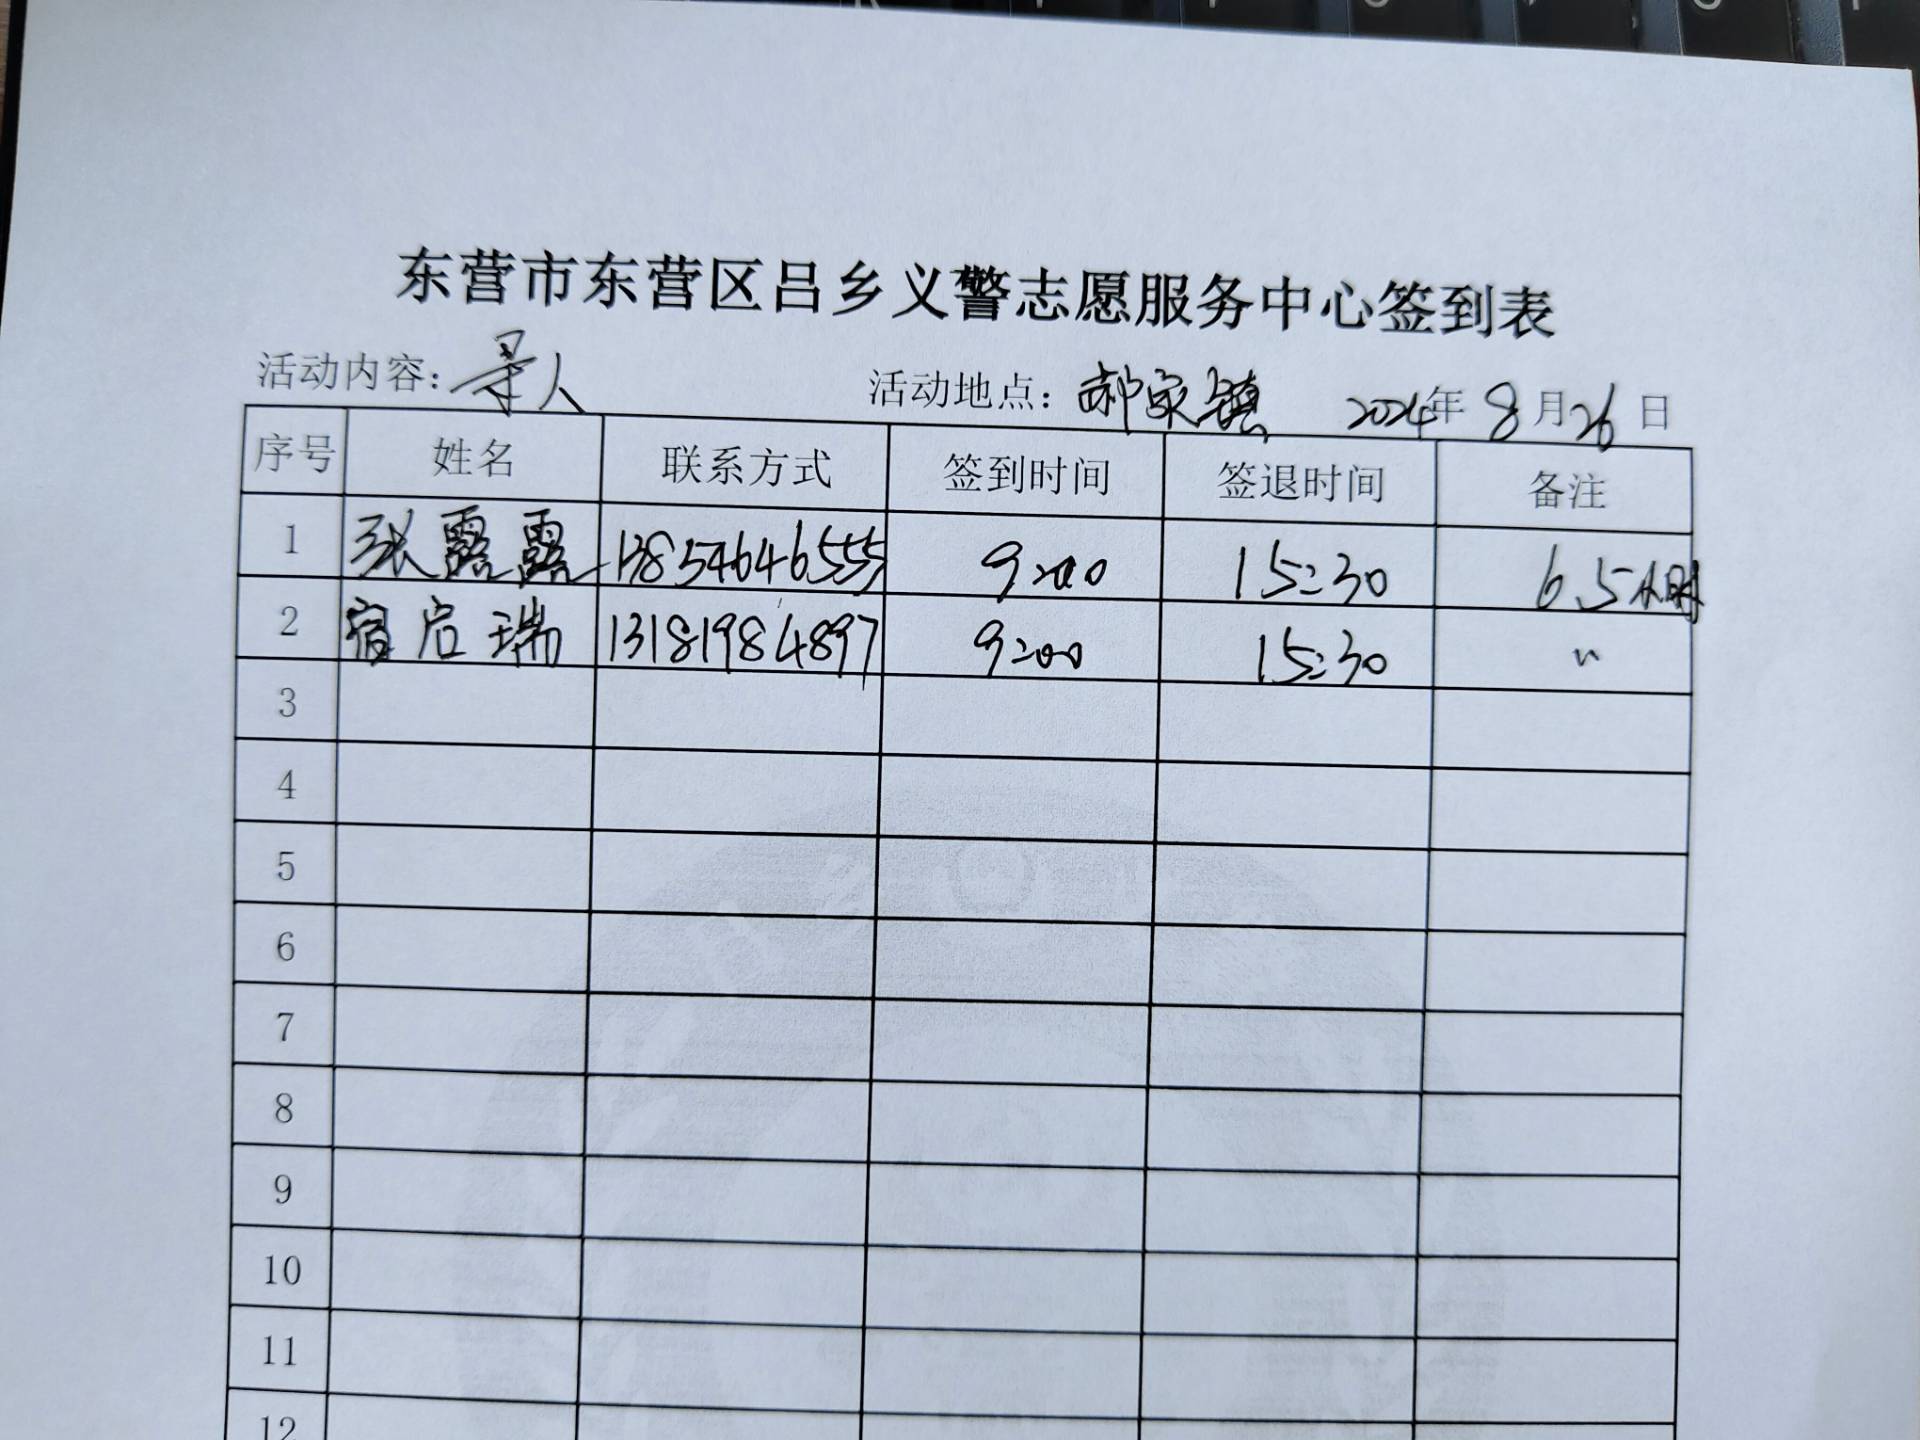 东营市东营区吕乡义警志愿服务中心签到表
活动内容：寻人 活动地点：郝家镇 2024年8月26日
序号 姓名 联系方式 签到时间 签退时间 备注
1 张露露 13854646555 9:00 15:30 6.5小时
2 宿启瑞 13181984897 9:00 15:30 〃
3
4
5
6
7
8
9
10
11
12